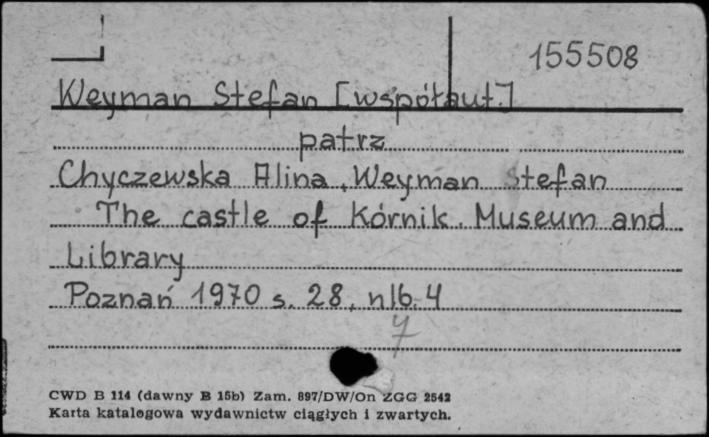 155508
Weyman Stefan [współaut.]
patrz
Chyczewska Alina, Weyman Stefan
The castle of Kórnik. Museum and
Library
Poznań 1970 s. 28, nlb. 4
7
CWD B 114 (dawny B 15b) Zam. 897/DW/On ZGG 2542
Karta katalogowa wydawnictw ciągłych i zwartych.